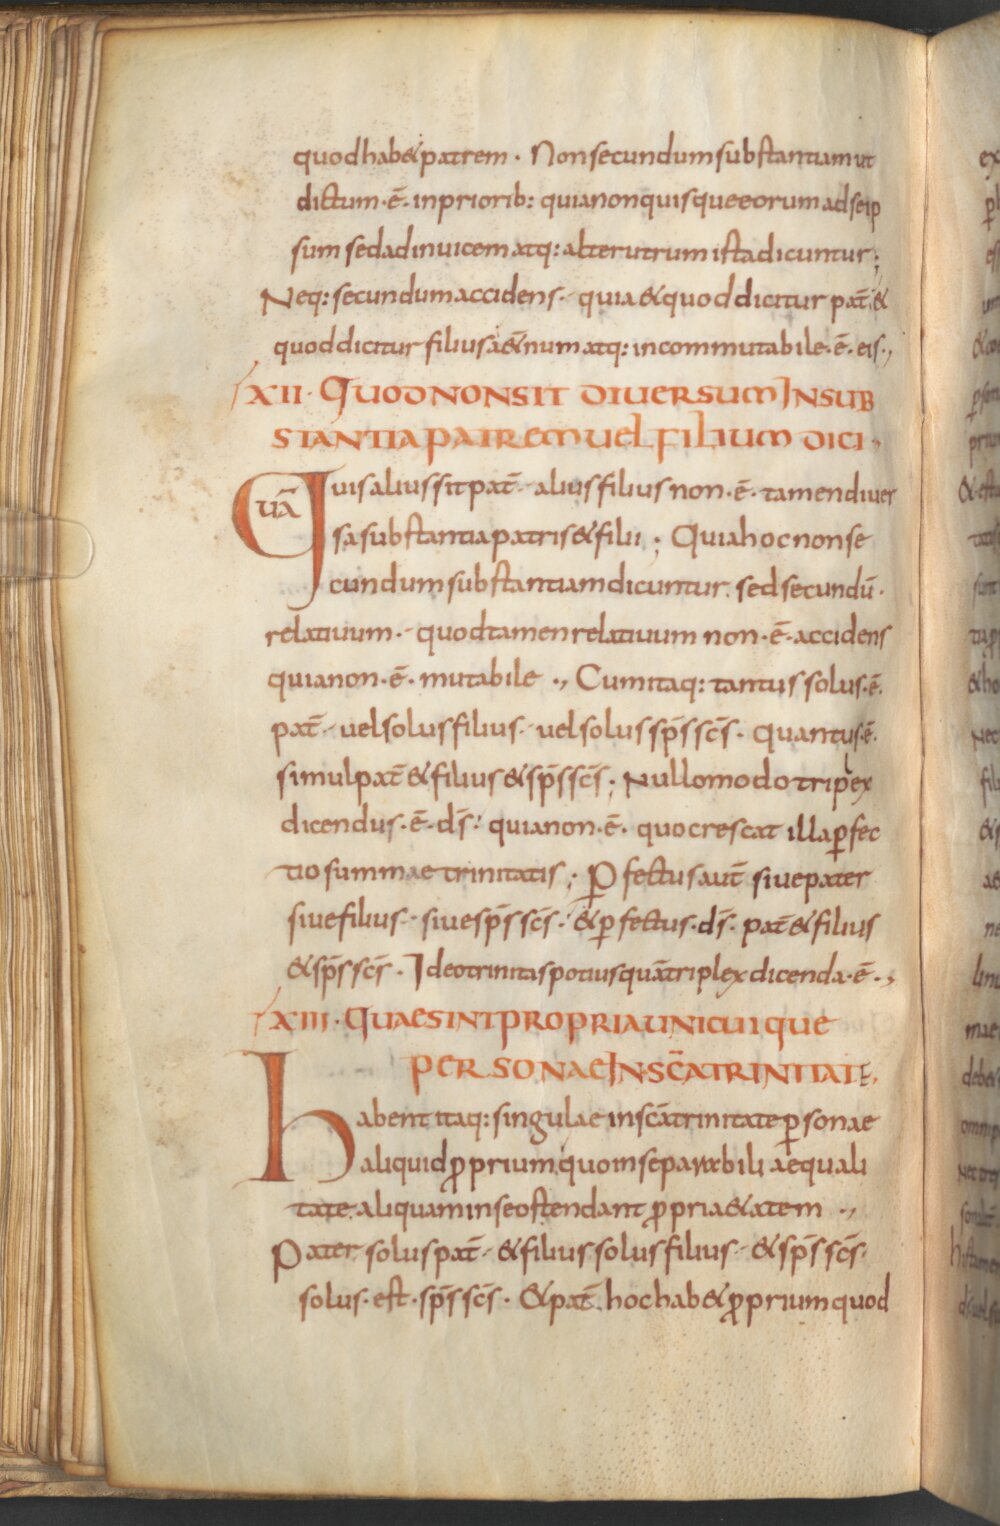 quod hab& patrem · Non secundum substantiam ut
dictum · ē · in priorib: quia non quisque eorum ad seip
sum sed ad inuicem atq: alterutrum ista dicuntur ;
Neq: secundum accidens · quia & quod dicitur pat̄ &
quod dicitur filius &̄num atq: incommutabile · ē · eis ·,
XII · QUOD NON SIT DIUERSUM IN SUB
STANTIA PATREM UEL FILIUM DICI ·
Quāuis alius sit pat̄ · alius filius non · ē · tamen diuer
sa substantia patris & filii ; Quia hoc non se
cundum substantiam dicuntur · sed secundū ·
relatiuum · quod tamen relatiuum non · ē · accidens
quia non · ē · mutabile ·, Cum itaq: tantus solus · ē ·
pat̄ · uel solus filius · uel solus sp̄s sc̄s · quantus · ē ·
simul pat̄ & filius & sp̄s sc̄s ; Nullo modo triplex
dicendus · ē · d̄s · quia non · ē · quo crescat illa ꝑfec
tio summae trinitatis ; Ꝑfectus aut̄ siue pater
siue filius · siue sp̄s sc̄s · & ꝑfectus · d̄s · pat̄ & filius
& sp̄s sc̄s · Ideo trinitas potius quā triplex dicenda · ē ·,
XIII · QUAE SINT PROPRIA UNICUIQUE
PERSONAE IN SC̄A TRINITATE,
Habent itaq: singulae in sc̄a trinitate ꝑsonae
aliquid ꝓprium quo inseparabili aequali
tate aliquam in se ostendant ꝓpri&atem ·,
Pater solus pat̄ · & filius solus filius · & sp̄s sc̄s ·
solus · est · sp̄s sc̄s · & pat̄ hoc hab& ꝓprium quod